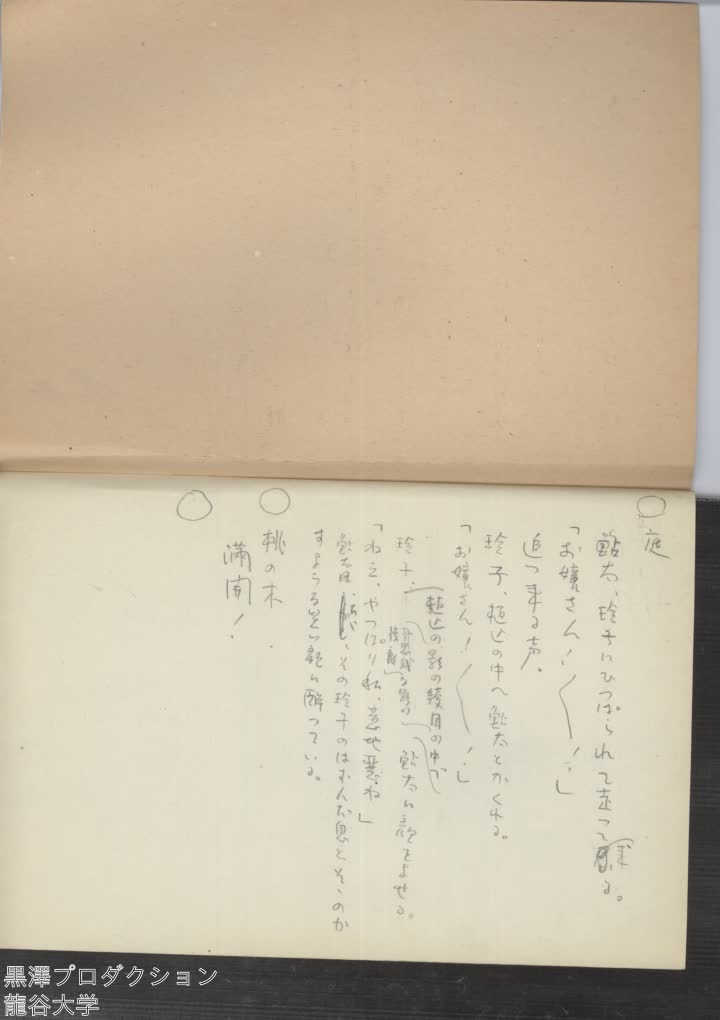 ○庭
鮎太、玲子にひっぱられて走って来る。
「お嬢さん!〱!」
追って来る声。
玲子、植込の中へ鮎太とかくれる。
「お嬢さん!〱!」
植込の影の綾目の中で
玲子、鮎太に顔をよせる。
「ねえ、やっぱり私、意地悪ね」
鮎太は、その玲子のはずんだ息とその
すような甘い
に酔っている。
○桃の木
満開!
○
黒澤プロダクション
龍谷大学